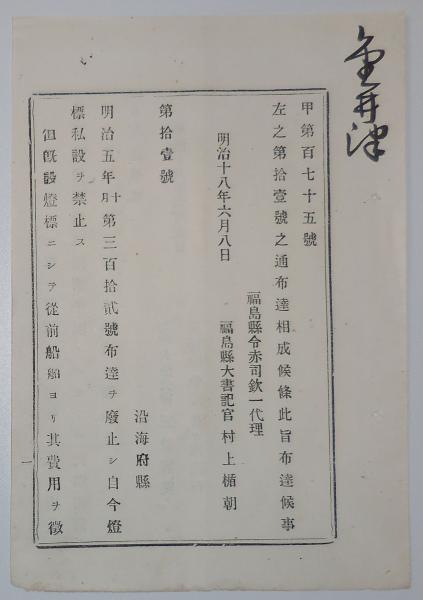 甲第百七十五號
左之第拾壹號之通布達相成候條此旨布達候事
福島縣令赤司欽一代理
明治十八年六月八日　福島縣大書記官　村上楯朝
第拾壹號
沿海府縣
明治五年十月第三百拾貳號布達ヲ廢止シ自今燈
標私設ヲ禁止ス
但既設燈標ニシテ從前船舶ヨリ其費用ヲ徵
一